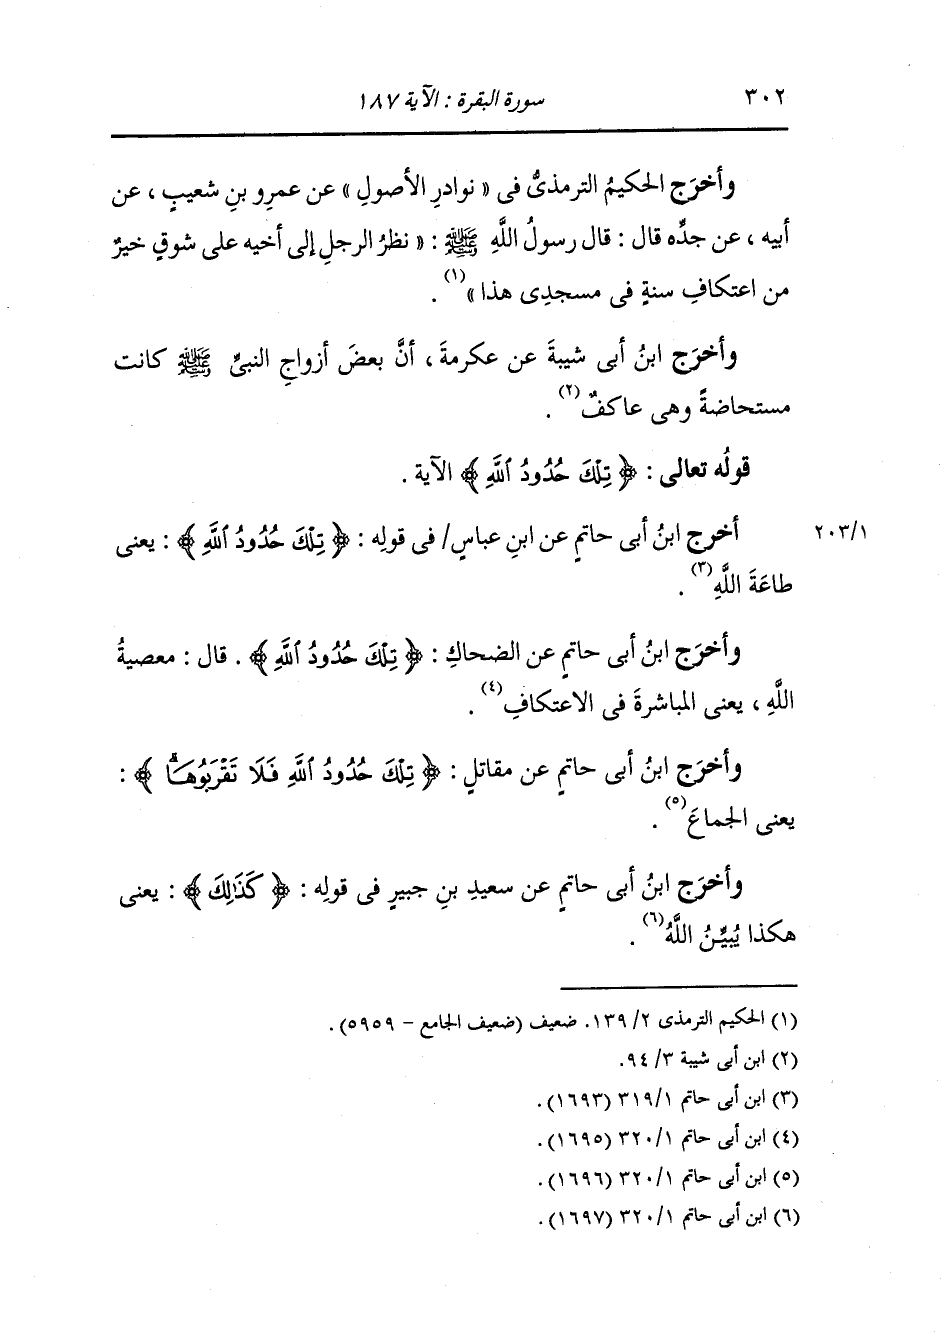 ٣٠٢ سورة البقرة : الآية ١٨٧
وأخرَج الحكيمُ الترمذىُّ فى « نوادرِ الأصولِ » عن عمرِو بنِ شعيبٍ ، عن
أبيه ، عن جدِّه قال : قال رسولُ اللَّهِ ﷺ : « نظرُ الرجلِ إلى أخيه على شوقٍ خيرٌ
من اعتكافِ سنةٍ فى مسجدِى هذا »(١) .
وأخرَج ابنُ أبى شيبةَ عن عكرمةَ ، أنَّ بعضَ أزواجِ النبىِّ ﷺ كانت
مستحاضةً وهى عاكفٌ(٢) .
قولُه تعالى : ﴿ تِلْكَ حُدُودُ ٱللَّهِ ﴾ الآية .
٢٠٣/١ أخرج ابنُ أبى حاتمٍ عن ابنِ عباسٍ/ فى قولِه : ﴿ تِلْكَ حُدُودُ ٱللَّهِ ﴾ : يعنى
طاعَةَ اللَّهِ(٣) .
وأخرَج ابنُ أبى حاتمٍ عن الضحاكِ : ﴿ تِلْكَ حُدُودُ ٱللَّهِ ﴾ . قال : معصيةُ
اللَّهِ ، يعنى المباشرةَ فى الاعتكافِ(٤) .
وأخرَج ابنُ أبى حاتمٍ عن مقاتلٍ : ﴿ تِلْكَ حُدُودُ ٱللَّهِ فَلَا تَقْرَبُوهَاۗ ﴾ :
يعنى الجماعَ(٥) .
وأخرَج ابنُ أبى حاتمٍ عن سعيدِ بنِ جبيرٍ فى قولِه : ﴿ كَذَٰلِكَ ﴾ : يعنى
هكذا يُبيِّنُ اللَّهُ(٦) .
(١) الحكيم الترمذى ٢/ ١٣٩. ضعيف (ضعيف الجامع – ٥٩٥٩).
(٢) ابن أبى شيبة ٣/ ٩٤.
(٣) ابن أبى حاتم ٣١٩/١ (١٦٩٣).
(٤) ابن أبى حاتم ٣٢٠/١ (١٦٩٥).
(٥) ابن أبى حاتم ٣٢٠/١ (١٦٩٦).
(٦) ابن أبى حاتم ٣٢٠/١ (١٦٩٧).